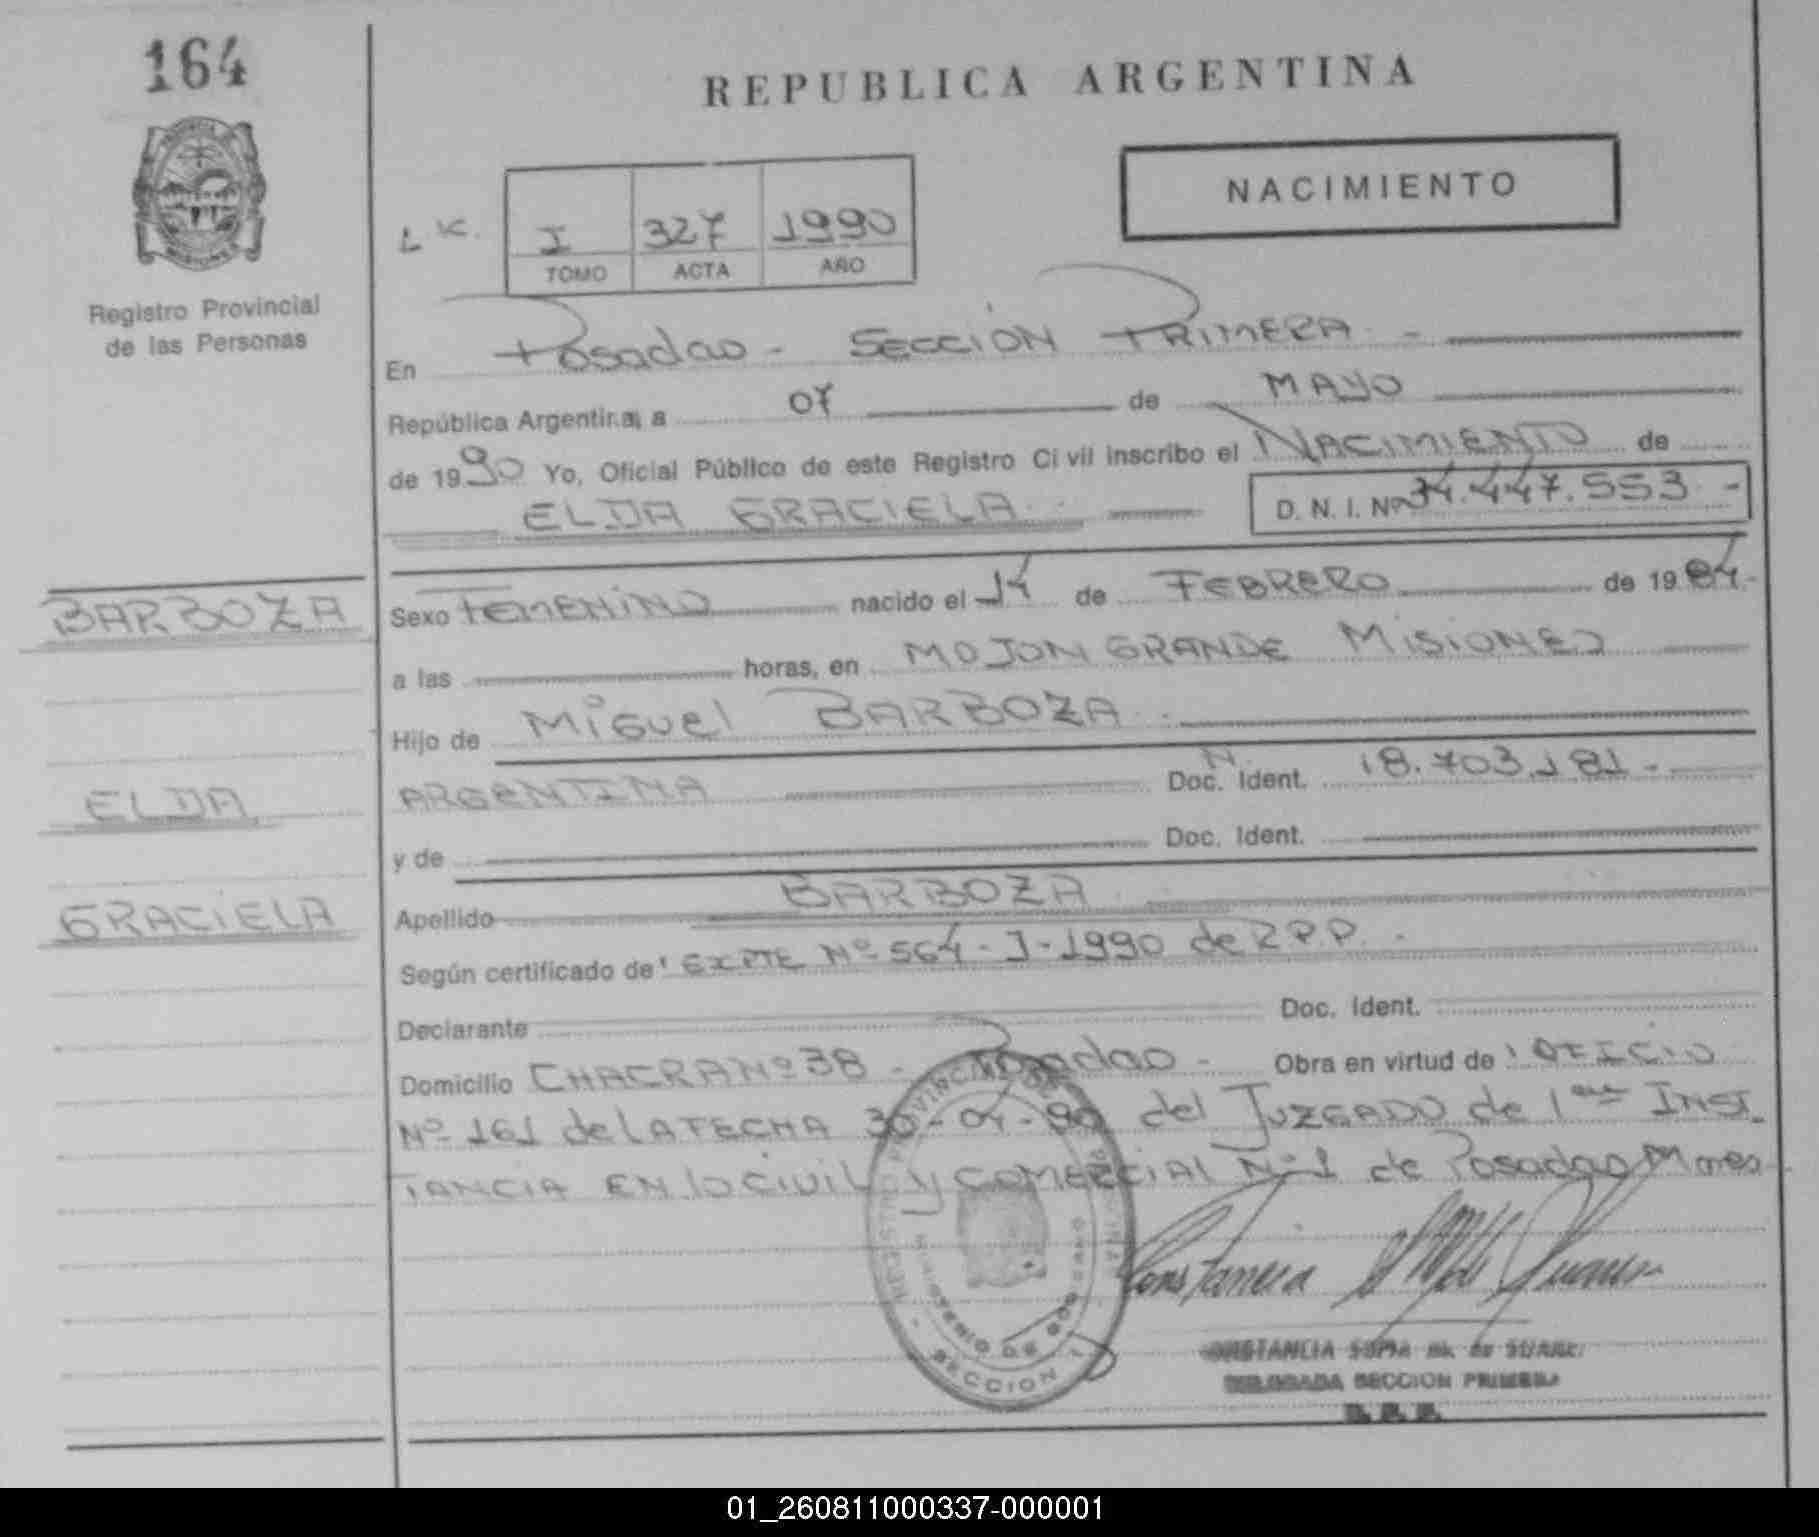 164
REPUBLICA ARGENTINA
NACIMIENTO
I 327 1990
TOMO ACTA AÑO
Registro Provincial
de las Personas
En Posadas - SECCION PRIMERA -
República Argentina, a 07 de MAYO
de 1990 Yo, Oficial Público de este Registro Civil inscribo el NACIMIENTO de
ELDA GRACIELA
D. N. I. Nº 34.447.553 -
BARBOZA
Sexo FEMENINO nacido el 14 de FEBRERO de 1984.
a las horas, en MOJON GRANDE MISIONES
Hijo de Miguel BARBOZA
ELDA
ARGENTINA Doc. Ident. 18.703.181 -
y de Doc. Ident.
GRACIELA
Apellido BARBOZA
Según certificado de EXPTE Nº 564-J-1990 de R.P.P. -
Declarante Doc. Ident.
Domicilio CHACRA Nº 38 - Posadas - Obra en virtud de OFICIO
Nº 161 de LA FECHA 30-04-90 del JUZGADO de 1era INS-
TANCIA EN lo CIVIL y COMERCIAL Nº 1 de Posadas Mnes
MINISTERIO DE GOBIERNO
SECCION 1
Constancia
DELEGADA SECCION PRIMERA
01_260811000337-000001